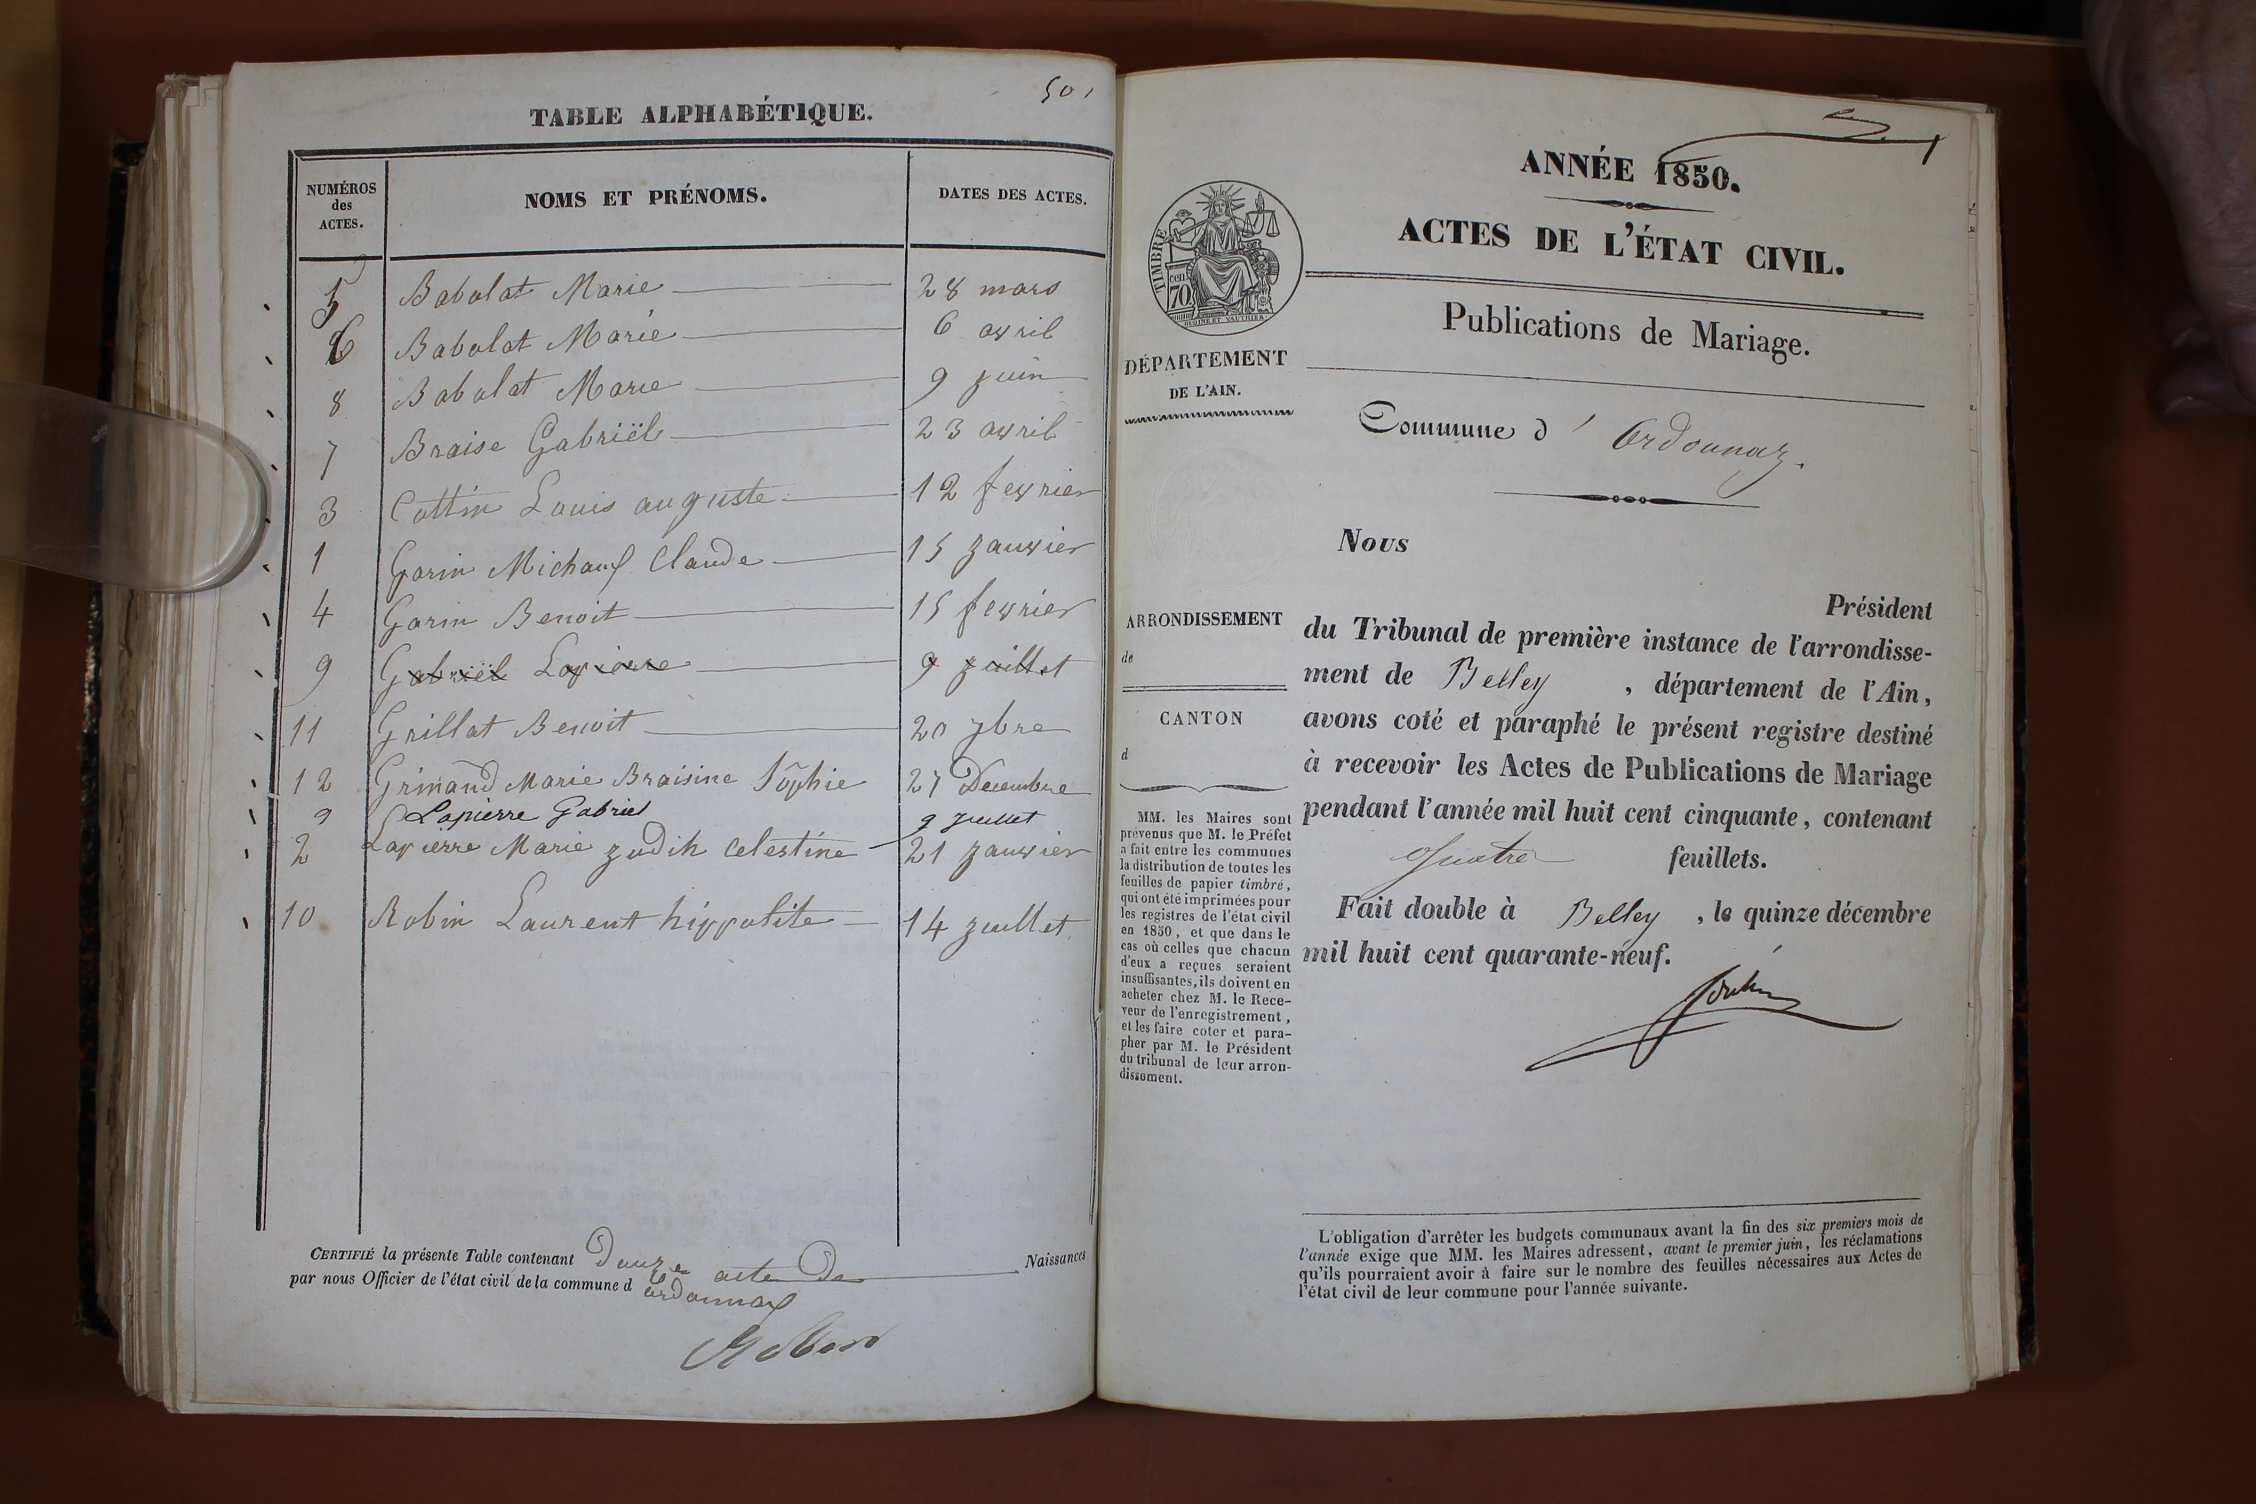 501
TABLE ALPHABÉTIQUE.
NUMÉROS des ACTES. NOMS ET PRÉNOMS. DATES DES ACTES.
5 Babolat Marie 28 mars
6 Babolat Marie 6 avril
8 Babolat Marie 9 juin
7 Braise Gabriël 23 avril
3 Cottin Louis auguste 12 fevrier
1 Gorin Michaux Claude 15 janvier
4 Gorin Benoit 15 fevrier
9 Gabriël Lapierre 9 juillet
11 Grillat Benoit 20 7bre
12 Grimand Marie Braisine Sophie 27 Decembre
9 Lapierre Gabriel 9 Juillet
2 Lapierre Marie judih celestine 21 janvier
10 Robin Laurent hippolite 14 juillet
CERTIFIÉ la présente Table contenant Douze acte De Naissances
par nous Officier de l'état civil de la commune d ordonnax
ANNÉE 1850.
ACTES DE L'ÉTAT CIVIL.
Publications de Mariage.
TIMBRE
70 cen.
DÉPARTEMENT
DE L'AIN.
Commune d' Ordonnaz.
Nous
Président
du Tribunal de première instance de l'arrondisse-
ment de Belley, département de l'Ain,
avons coté et paraphé le présent registre destiné
à recevoir les Actes de Publications de Mariage
pendant l'année mil huit cent cinquante, contenant
quatre feuillets.
Fait double à Belley, le quinze décembre
mil huit cent quarante-neuf.
ARRONDISSEMENT
de
CANTON
d
MM. les Maires sont
prévenus que M. le Préfet
a fait entre les communes
la distribution de toutes les
feuilles de papier timbré,
qui ont été imprimées pour
les registres de l'état civil
en 1850, et que dans le
cas où celles que chacun
d'eux a reçues seraient
insuffisantes, ils doivent en
acheter chez M. le Rece-
veur de l'enregistrement,
et les faire coter et para-
pher par M. le Président
du tribunal de leur arron-
dissement.
L'obligation d'arrêter les budgets communaux avant la fin des six premiers mois de
l'année exige que MM. les Maires adressent, avant le premier juin, les réclamations
qu'ils pourraient avoir à faire sur le nombre des feuilles nécessaires aux Actes de
l'état civil de leur commune pour l'année suivante.